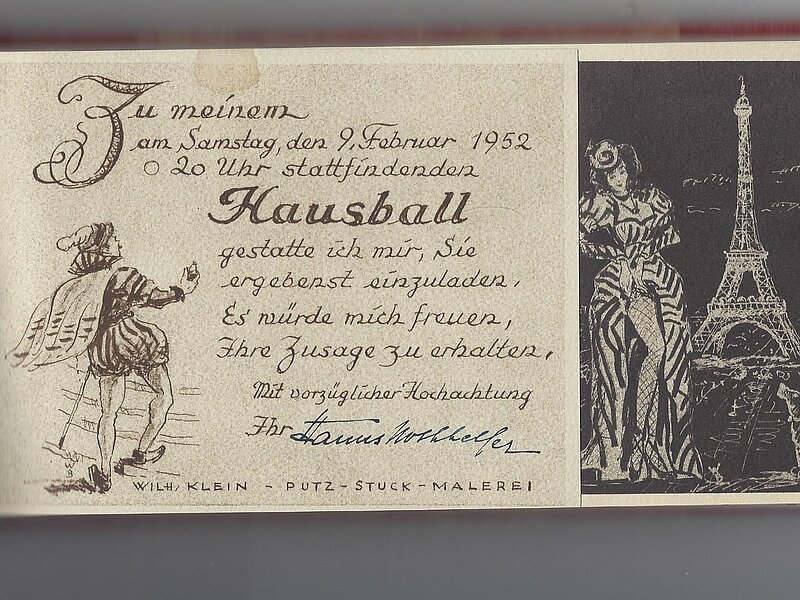 Zu meinem
am Samstag, den 9. Februar 1952
20 Uhr stattfindenden
Hausball
gestatte ich mir, Sie
ergebenst einzuladen.
Es würde mich freuen,
Ihre Zusage zu erhalten.
Mit vorzüglicher Hochachtung
Ihr Hanns
WILH. KLEIN - PUTZ - STUCK - MALEREI